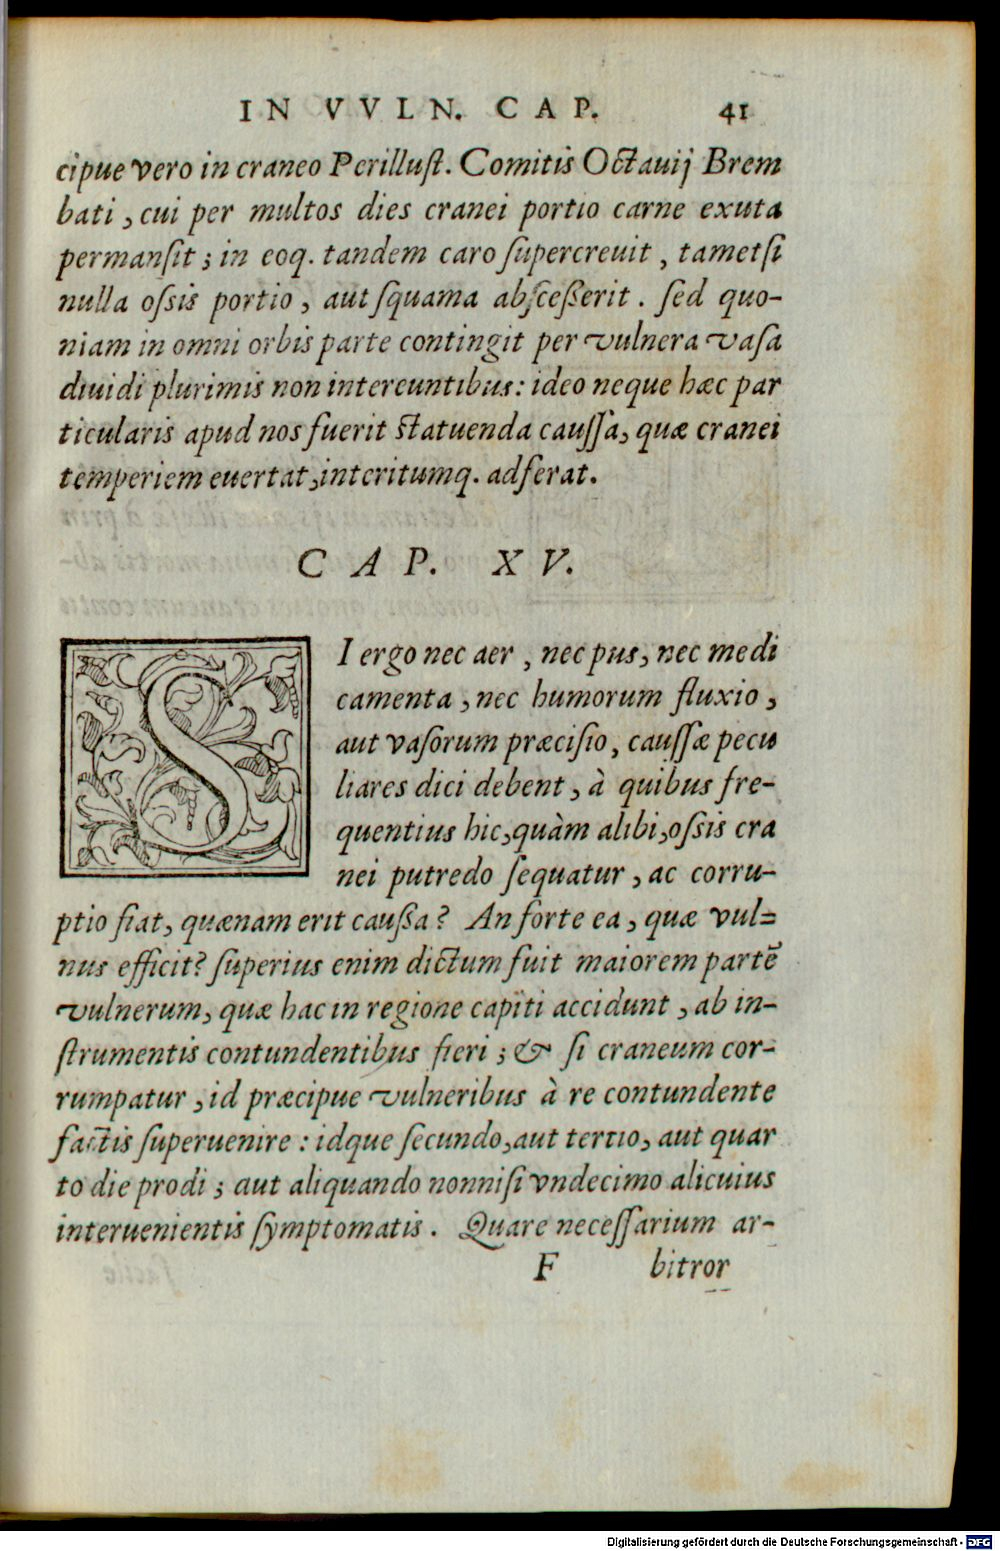 IN VVLN. CAP. 41
cipue vero in craneo Perillust. Comitis Octauij Brem
bati, cui per multos dies cranei portio carne exuta
permansit; in eoq. tandem caro supercreuit, tametsi
nulla ossis portio, aut squama abscesserit. sed quo-
niam in omni orbis parte contingit per vulnera vasa
diuidi plurimis non intereuntibus: ideo neque hæc par
ticularis apud nos fuerit statuenda caussa, quæ cranei
temperiem euertat, interitumq. adferat.
CAP. XV.
SI ergo nec aer, nec pus, nec medi
camenta, nec humorum fluxio,
aut vasorum præcisio, caussæ pecu
liares dici debent, à quibus fre-
quentius hic, quàm alibi, ossis cra
nei putredo sequatur, ac corru-
ptio fiat, quænam erit caussa? An forte ea, quæ vul=
nus efficit? superius enim dictum fuit maiorem partē
vulnerum, quæ hac in regione capiti accidunt, ab in-
strumentis contundentibus fieri; & si craneum cor-
rumpatur, id præcipue vulneribus à re contundente
factis superuenire: idque secundo, aut tertio, aut quar
to die prodi; aut aliquando nonnisi vndecimo alicuius
interuenientis symptomatis. Quare necessarium ar-
F bitror
Digitalisierung gefördert durch die Deutsche Forschungsgemeinschaft - DFG